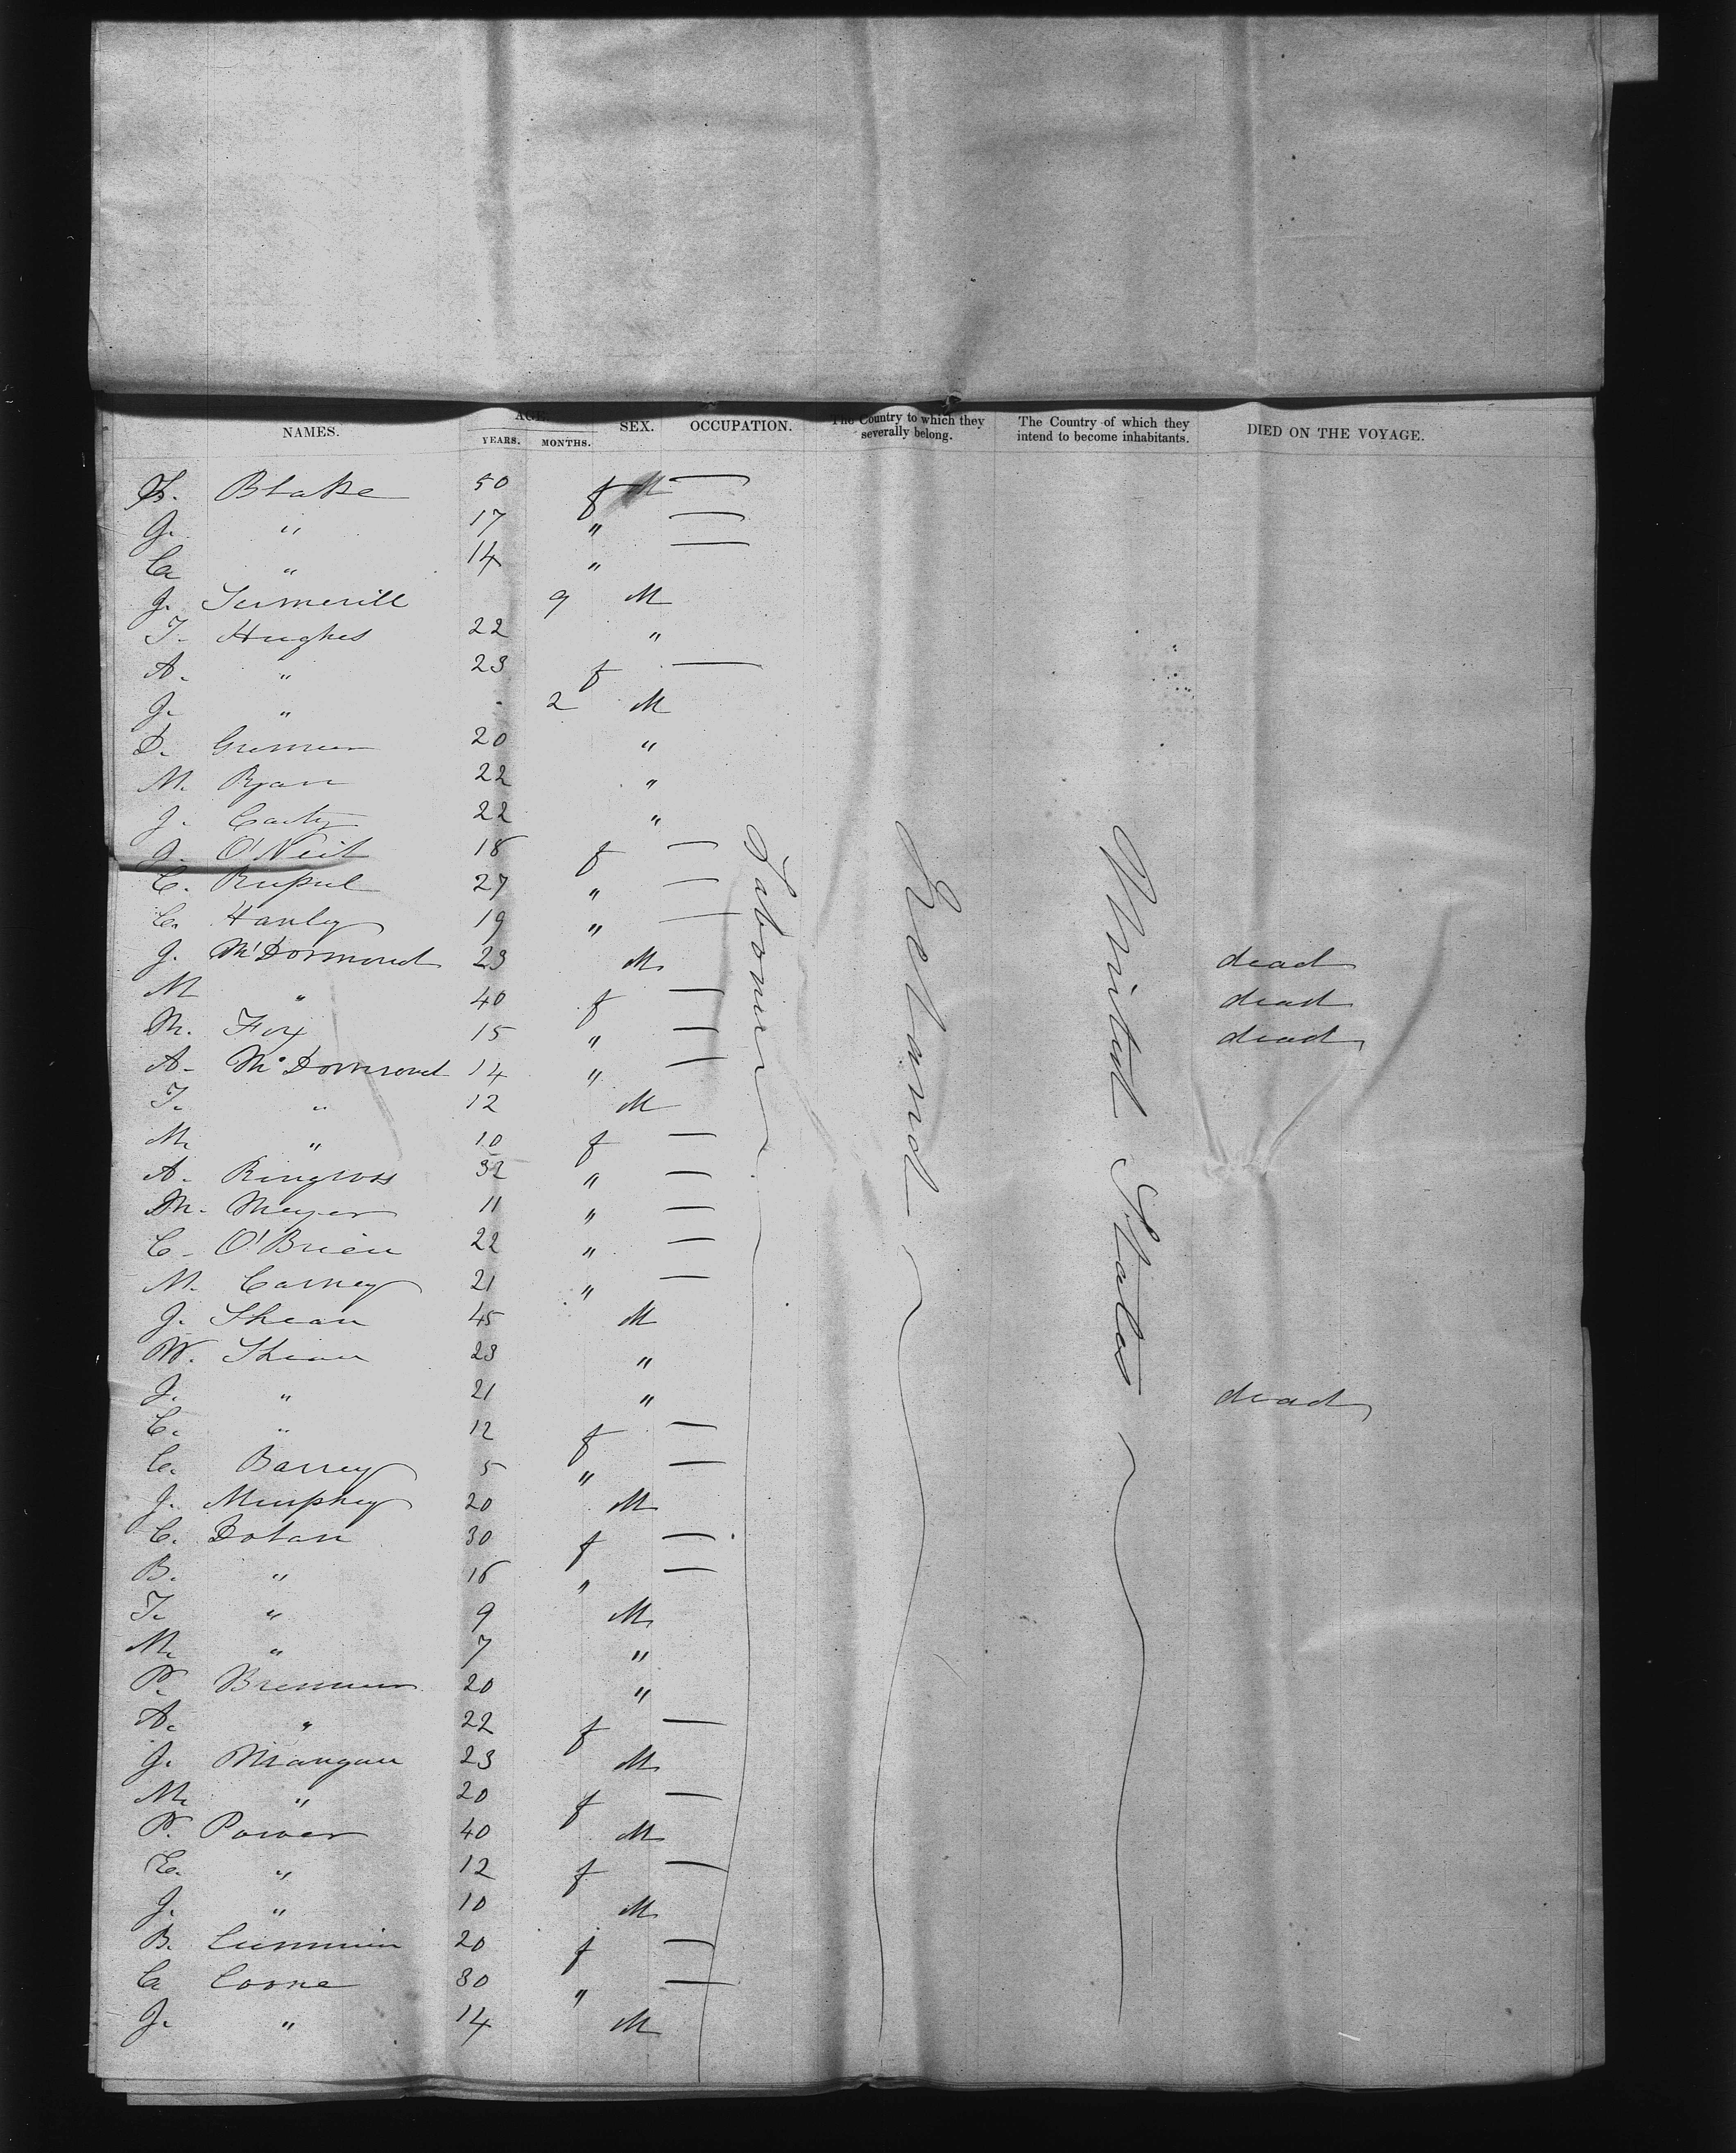 NAMES. AGE. YEARS. MONTHS. SEX. OCCUPATION. The Country to which they severally belong. The Country of which they intend to become inhabitants. DIED ON THE VOYAGE.
Blake 50 f M —
J. " 17 " —
Ca " 14 " —
J. 9 M
T. Hughes 22 "
A. " 23 f —
J. " 2 M
D. 20 "
M. Ryan 22 "
J. Carty 22 "
J. O'Neil 18 f —
C. 27 " —
C. Hanley 19 " —
J. McDormond 23 M dead
M " 40 f — dead
M. Fox 15 " — dead
A. McDormond 14 " —
T. " 12 M
M. " 10 f —
A. Ringross 32 " —
M. Meyer 11 " —
C. O'Brien 22 " —
M. Carney 21 " —
J. Shean 45 M
W. Shean 23 "
J. " 21 " dead
C. " 12 f —
C. Barrey 5 " —
J. Murphey 20 M
C. Dolan 30 f —
B. " 16 " —
T. " 9 M
M. " 7 "
P. Brennen 20 "
A. " 22 f —
J. Mangan 23 M
M. " 20 f —
P. Power 40 M
E. " 12 f —
J. " 10 M
B. Cummin 20 f —
Ca Coone 30 " —
J. " 14 M
Labourer
Ireland
United States